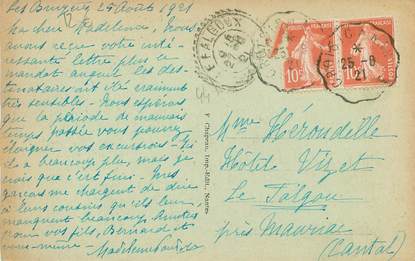 Les Bruyères 25 Août 1921
Ma chère Madeleine, Nous
avons reçu votre intéressante
lettre plus le
mandat auquel les destinataires
ont été vraiment
très sensibles. Nous espérons
que la période de mauvais
temps passée vous pouvez
éloigner vos excursions. Ici
il a beaucoup plu, mais je
crois que c'est fini. Mes
garçons me chargent de dire
à leurs cousins qu'ils leur
manquent beaucoup. Amitiés
pour vos fils, Bernard et
vous-même. Madeleine
F. Chapeau, Imp.-Édit., Nantes
LEFALGOUX
10c
10c
25-8
21
Mme Hérondelle
Hôtel Vizet
Le Falgoux
près Mauriac
(Cantal)